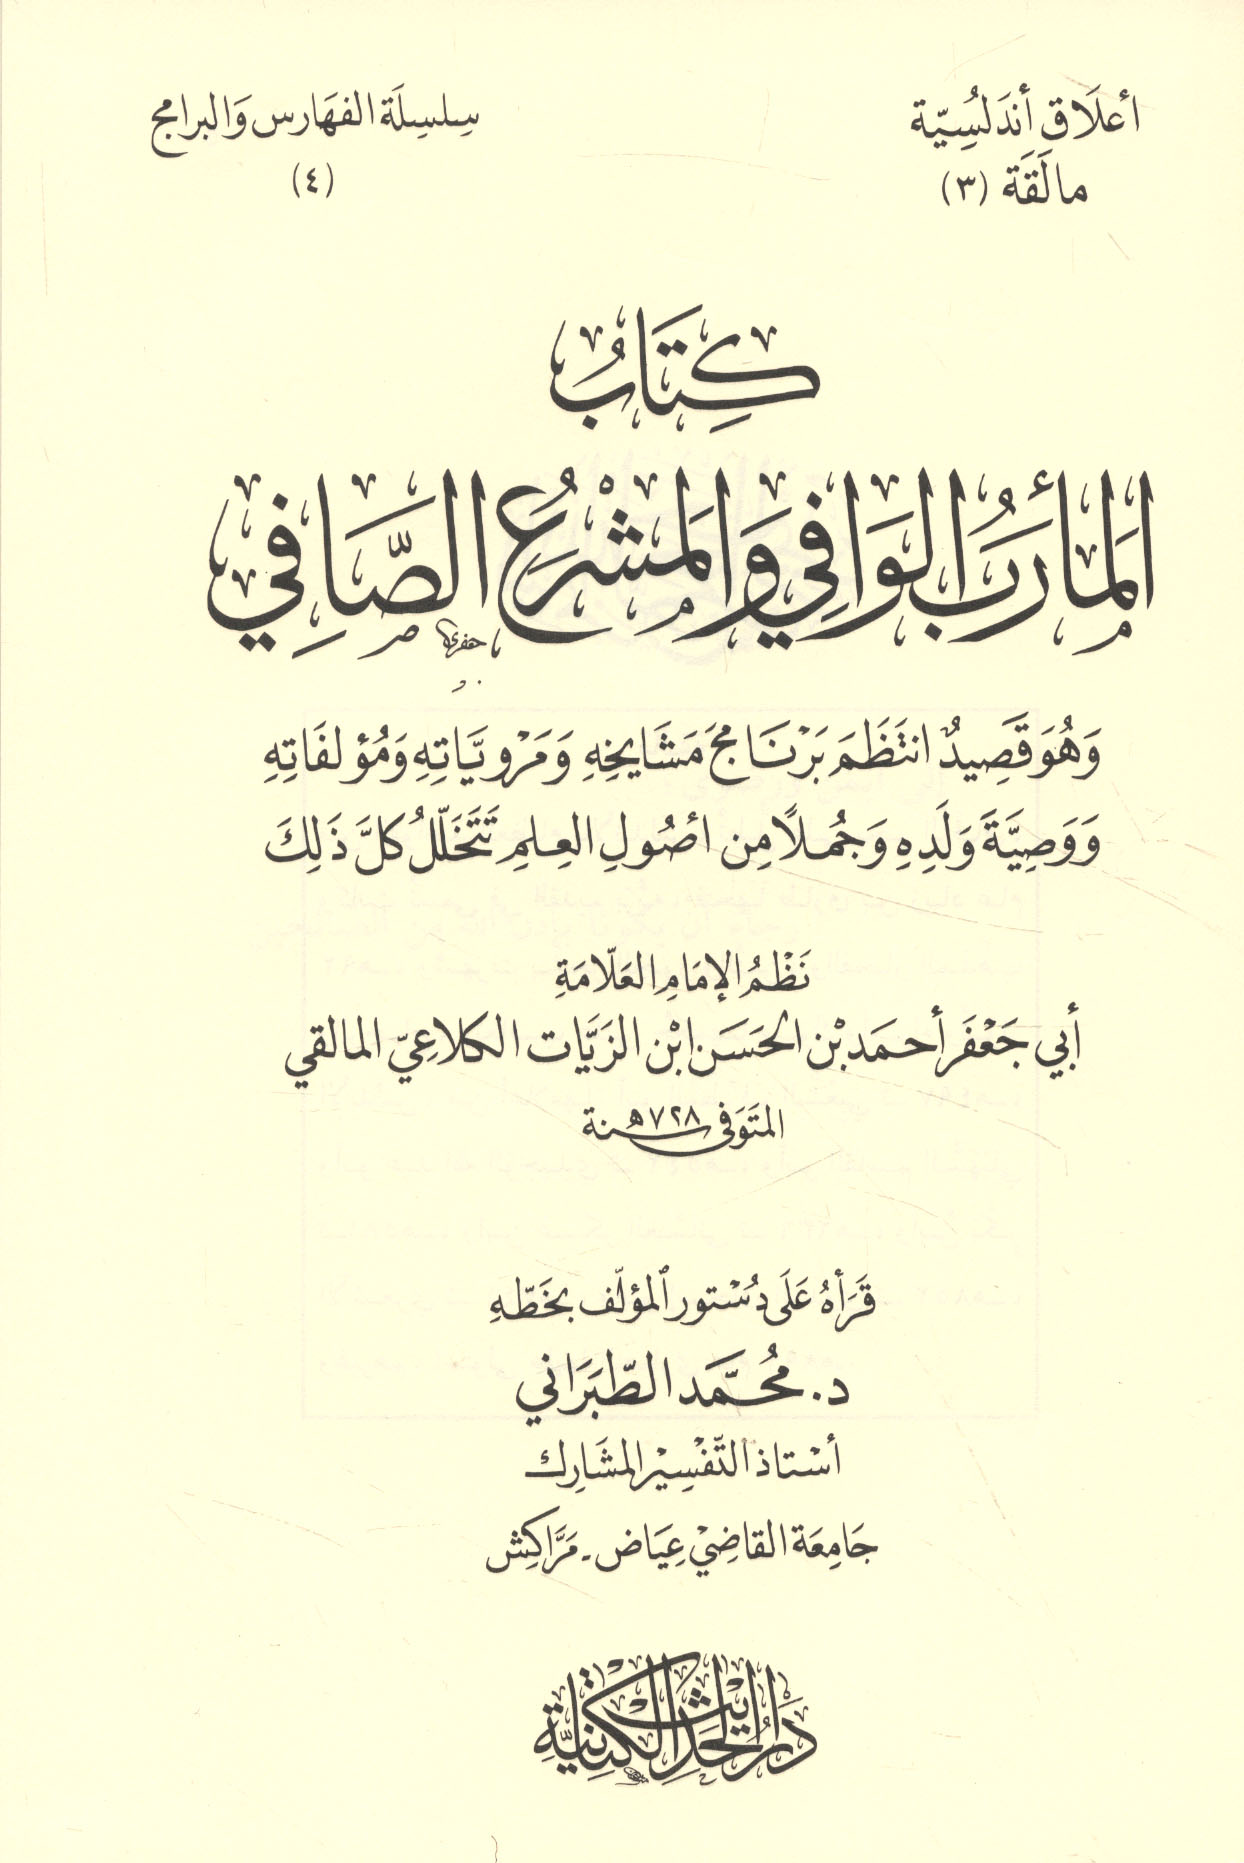 أعلَاق أندَلُسِيّة
مالَقَة (٣)
سِلسِلَة الفهَارس وَالبرامج
(٤)
كِتَابُ
المأرَبُ الوَافِي وَالمَشْرعُ الصَّافِي
وَهُوَ قَصِيدٌ انتَظَمَ بَرْنَامجَ مَشَايخِهِ وَمَرْويَّاتِهِ وَمُؤلفَاتِهِ
وَوَصِيَّةَ وَلَدِهِ وَجُملًا مِن أصُولِ العِلمِ تَتَخَلّلُ كلَّ ذَلِكَ
نَظْمُ الإمَامِ العَلّامَةِ
أبي جَعْفَر أحمَد بْن الحَسَن ابْن الزَيَّات الكلاعِيّ المالقي
المتَوَفى سنة ٧٢٨ھ
قَرَأهُ عَلَى دُسْتور المؤلّف بخَطّهِ
د. محُمَّد الطّبَرَاني
أسْتاذ التّفْسِيْر المشَارِك
جَامِعَة القاضِيْ عِيَاض - مَرَّاكِش
دَارُ الحَدِيثِ الكتَّانِيَّةِ